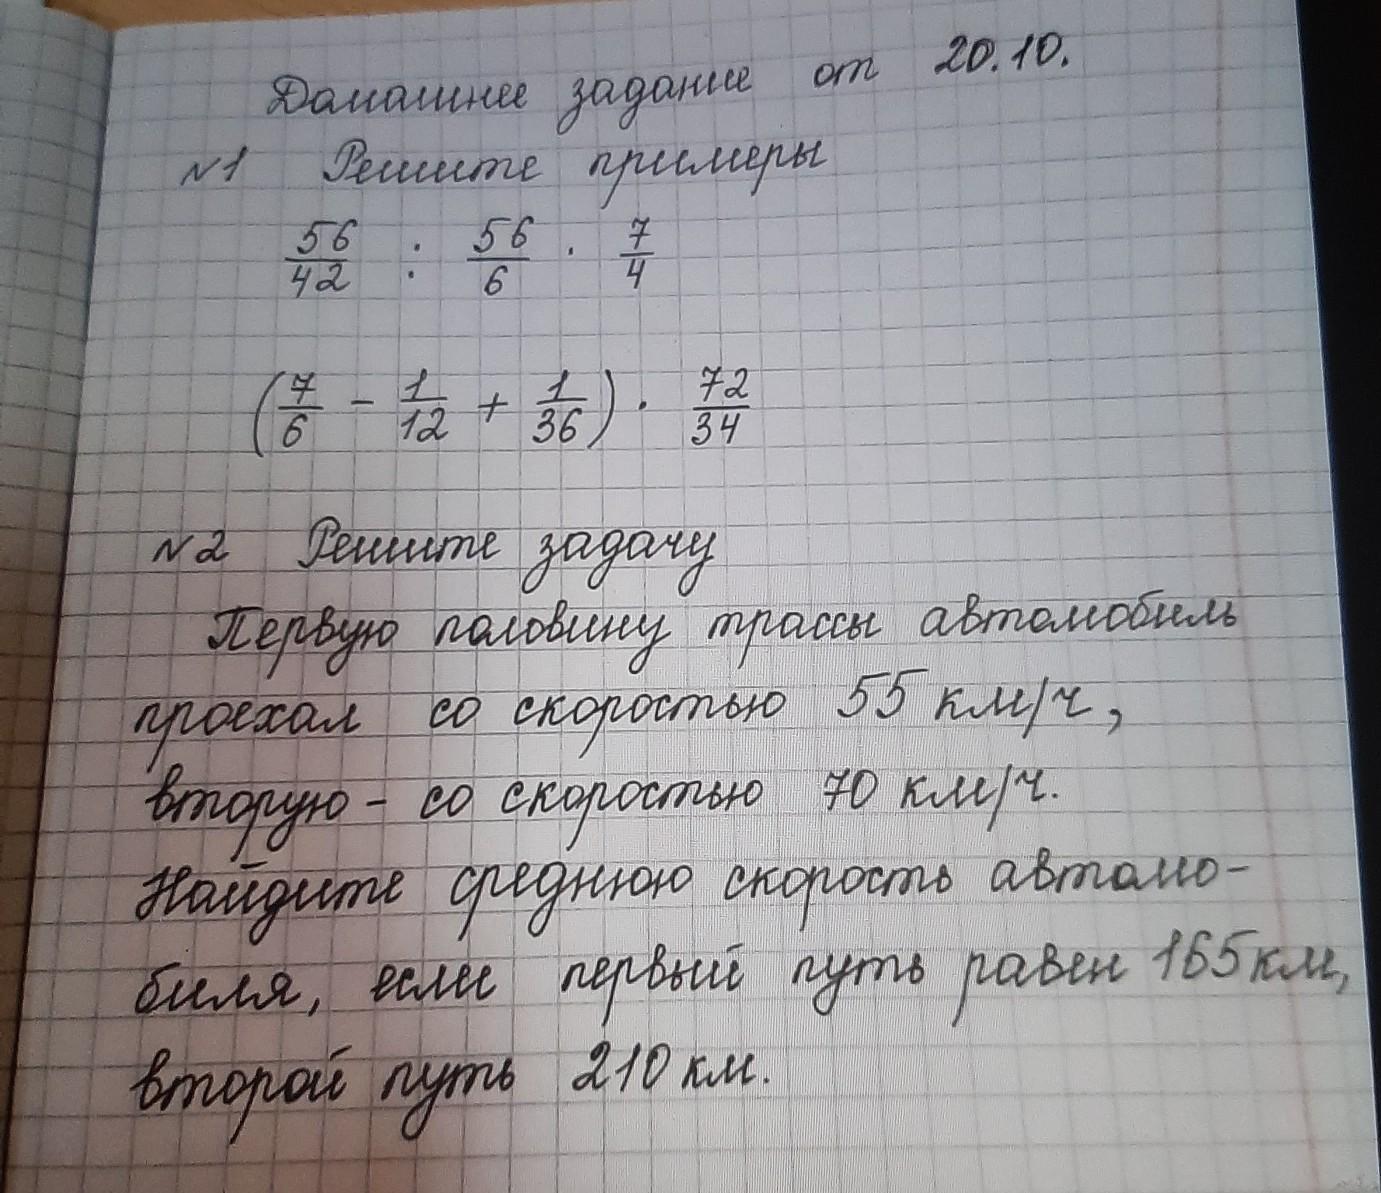 Домашнее задание от 20.10.
№1 Решите примеры
56/42 : 56/6 · 7/4
(7/6 - 1/12 + 1/36) · 72/34
№2 Решите задачу
Первую половину трассы автомобиль
проехал со скоростью 55 км/ч,
вторую - со скоростью 70 км/ч.
Найдите среднюю скорость автомо-
биля, если первый путь равен 165 км,
второй путь 210 км.